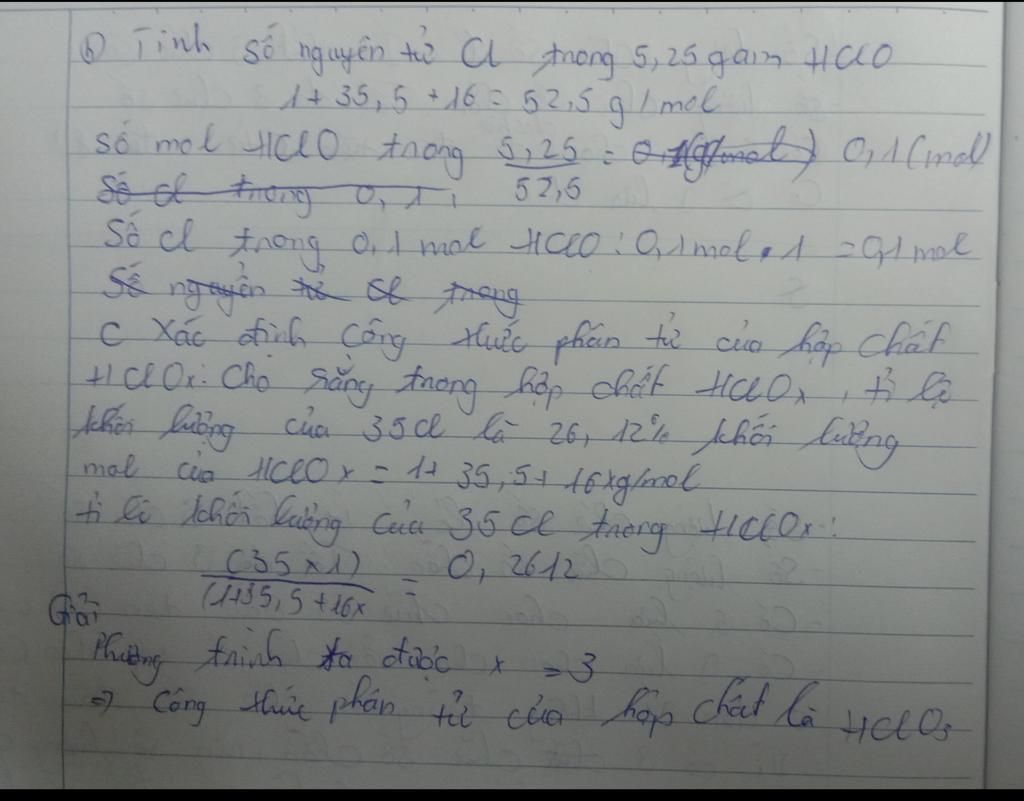 b) Tính số nguyên tử Cl trong 5,25 gam HClO
1 + 35,5 + 16 = 52,5 g/mol
số mol HClO trong 5,25/52,5 = 0,1(g/mol) 0,1(mol)
Số cl trong 0,1,
Số cl trong 0,1 mol HClO : 0,1 mol . 1 = 0,1 mol
Số nguyên tử cl trong
C Xác định Công thức phân tử của hợp chất
HClOx: Cho rằng trong hợp chất HClOx, tỉ lệ
khối lượng của 35Cl là 26,12% khối lượng
mol của HClOx = 1 + 35,5 + 16x g/mol
tỉ lệ khối lượng của 35Cl trong HClOx:
(35x1)/(1+35,5+16x = 0,2612
Giải
Phương trình ta được x = 3
=> Công thức phân tử của hợp chất là HClO3